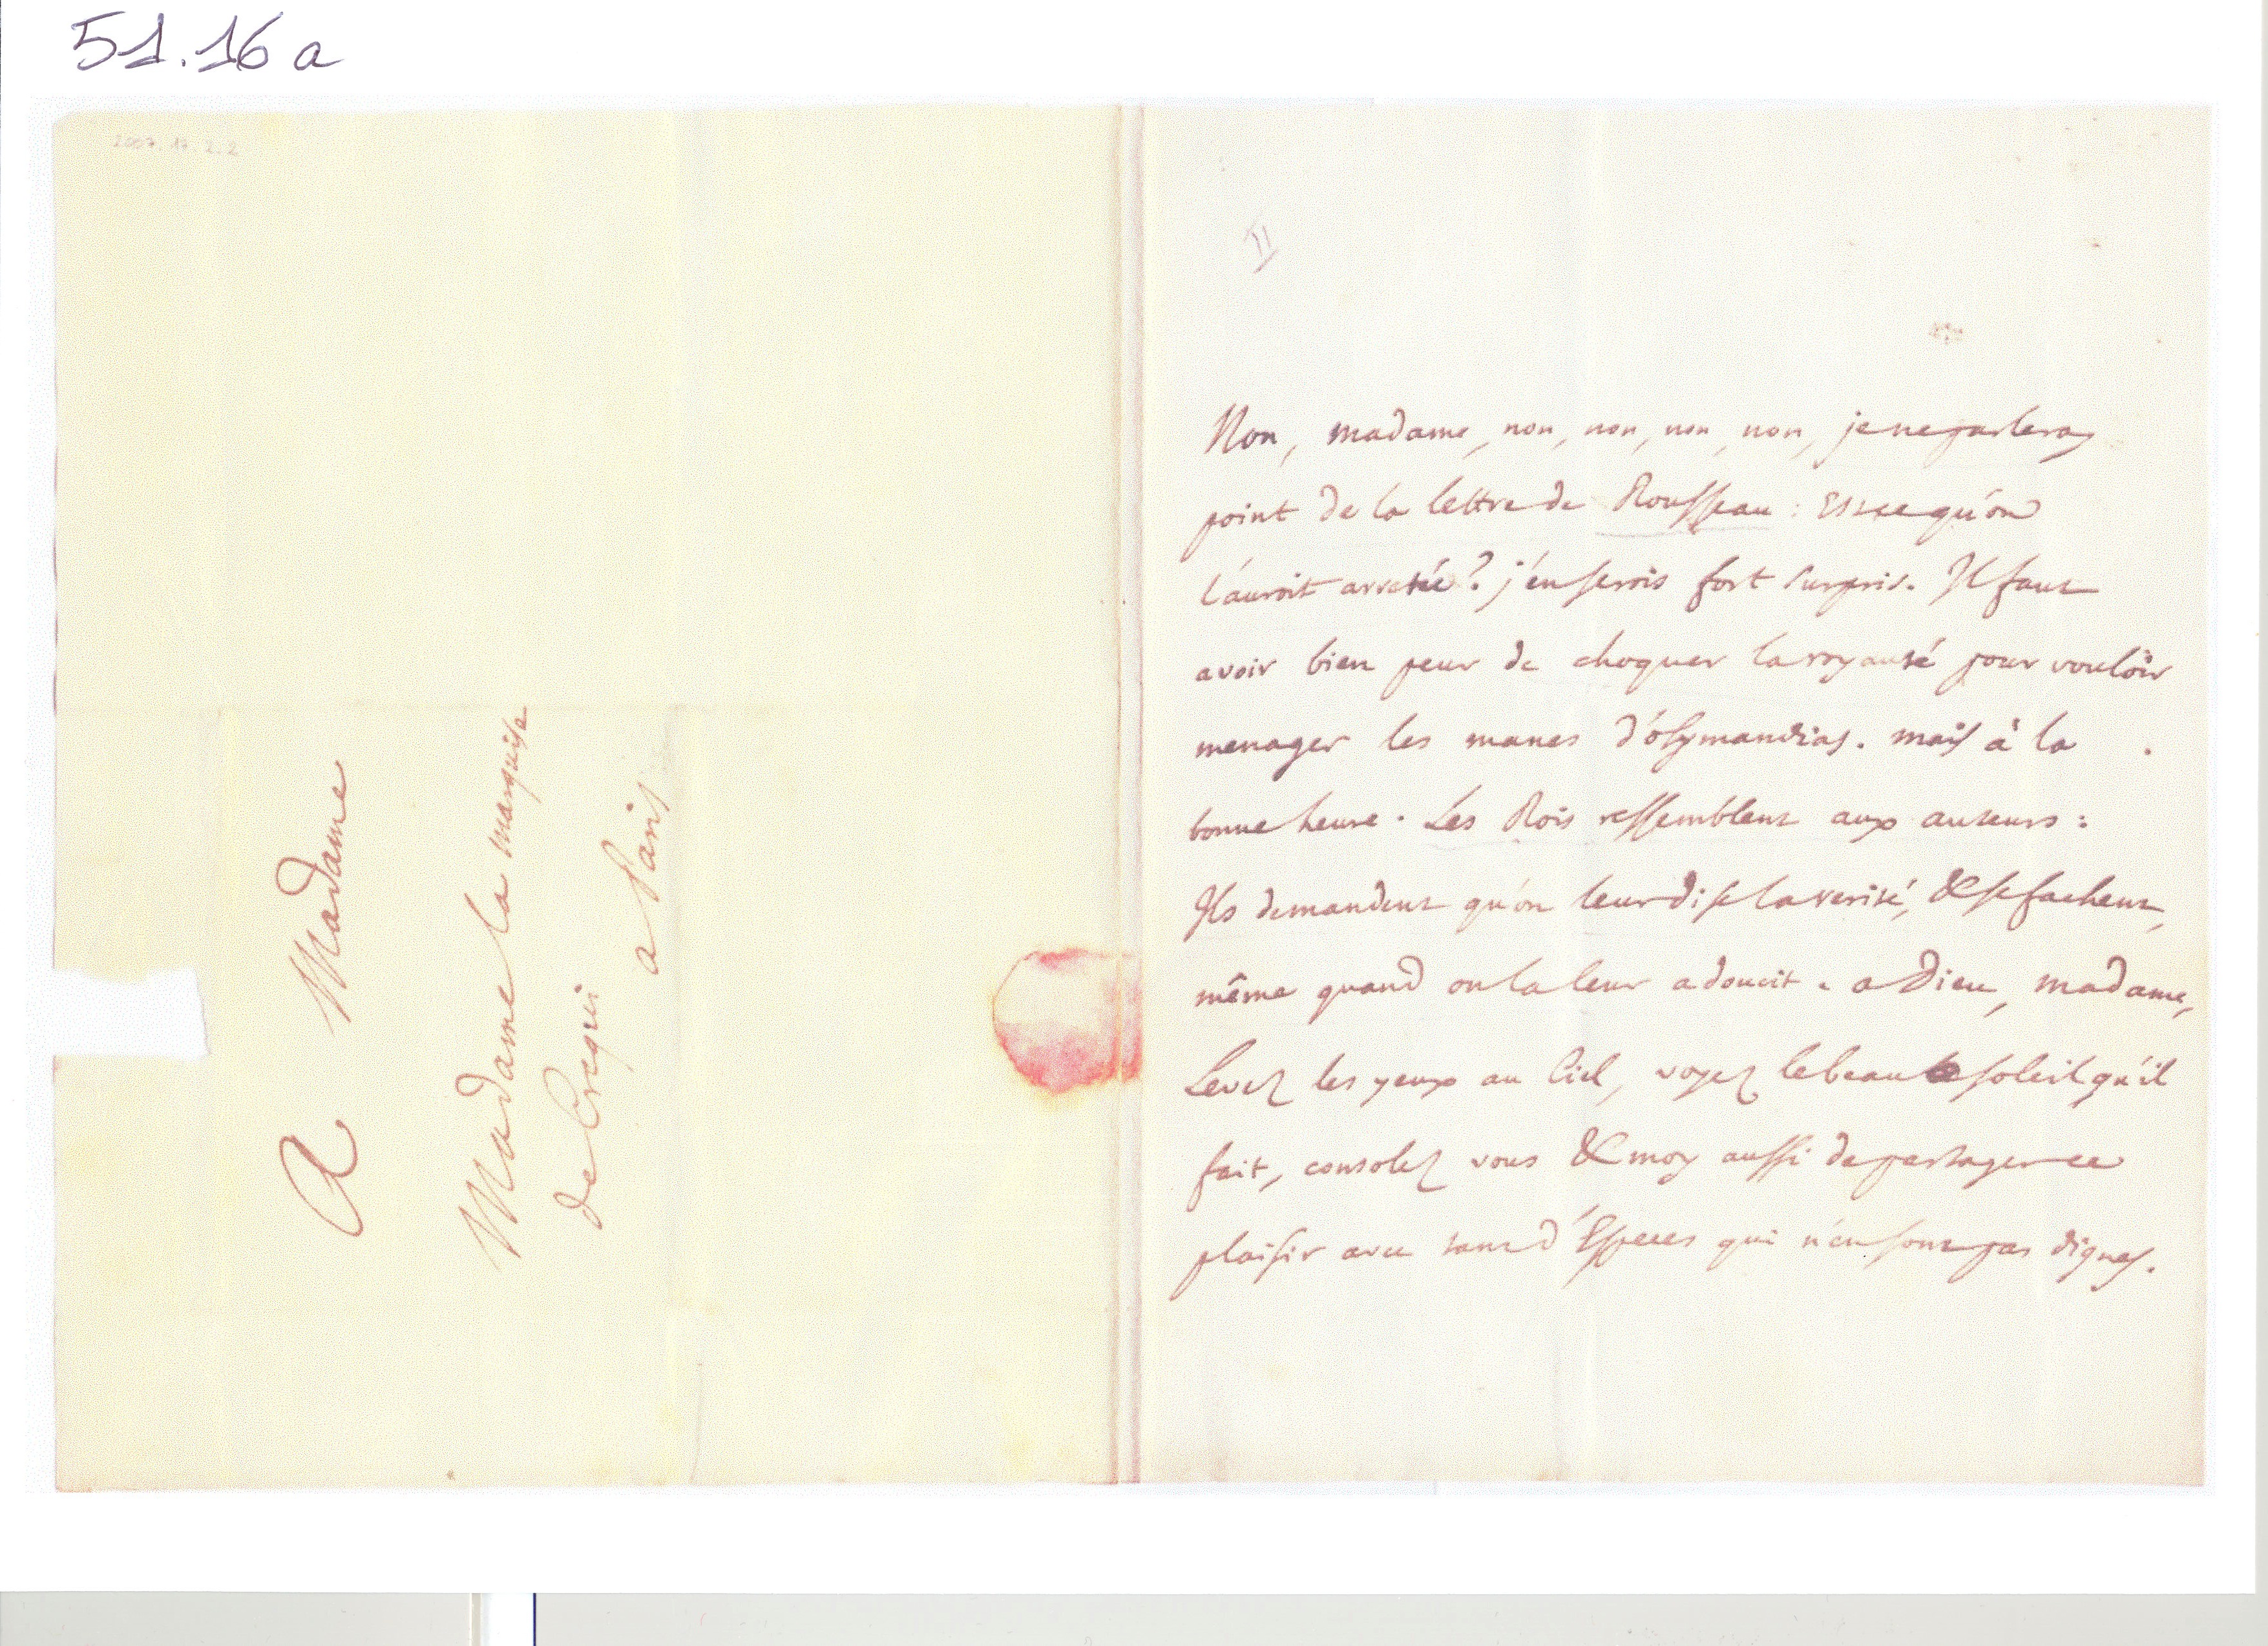 51.16 a
2007.17.2.2
A Madame
Madame la marquise
de Crequi
a Paris
II
Non, madame, non, non, non, non, je ne parleray
point de la lettre de Rousseau : Esce qu'on
l'auroit arretée ? j'en serois fort surpris. Il faut
avoir bien peur de choquer la royauté pour vouloir
menager les manes d'Osymandias. mais à la
bonne heure. Les Rois ressemblent aux auteurs :
Ils demandent qu'on leur dise la verité, & se fachent,
même quand on la leur adoucit. a Dieu, madame,
Levez les yeux au Ciel, voyez le beau soleil qu'il
fait, consolez vous & moy aussi de partager ce
plaisir avec tant d'Especes qui n'en sont pas dignes.